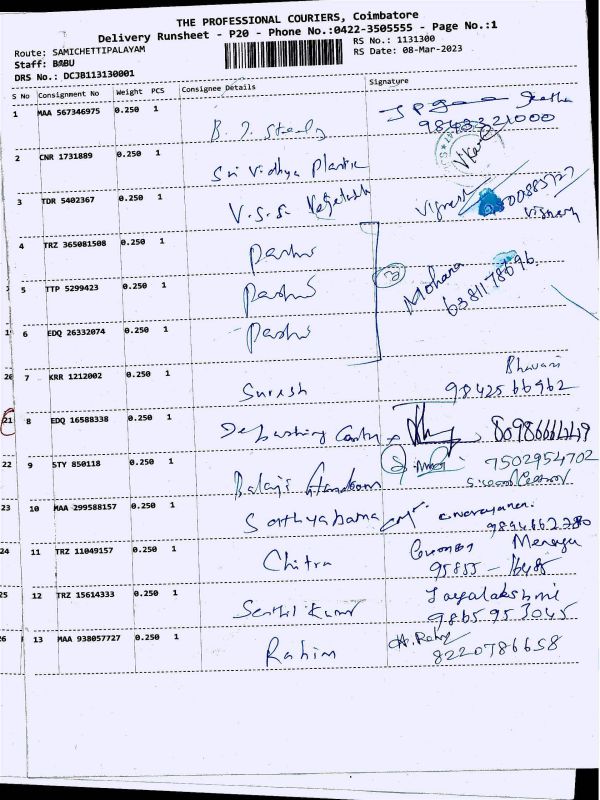 THE PROFESSIONAL COURIERS, Coimbatore
Delivery Runsheet - P20 - Phone No.:0422-3505555 - Page No.:1
Route: SAMICHETTIPALAYAM
RS No.: 1131300
Staff: BABU
RS Date: 08-Mar-2023
DRS No.: DCJB113130001
S No Consignment No Weight PCS Consignee Details Signature
1 MAA 567346975 0.250 1
9843321000
2 CNR 1731889 0.250 1 Sri Vidhya Plastic
3 TDR 5402367 0.250 1 V.S.S. Vegetable Vignesh
Vignesh
4 TRZ 365081508 0.250 1
5 TTP 5299423 0.250 1 Mohana
6381178696
19 6 EDQ 26332074 0.250 1
20 7 KRR 1212002 0.250 1 Suresh Bhavani
9842566962
21 8 EDQ 16588338 0.250 1
22 9 STY 850118 0.250 1 Balaji 7502954702
23 10 MAA 299588157 0.250 1 Sathyabama
24 11 TRZ 11049157 0.250 1 Chitra
95855 - 16485
25 12 TRZ 15614333 0.250 1 Senthil Kumar Jayalakshmi
9865953045
26 13 MAA 938057727 0.250 1 Rahim
8220786658